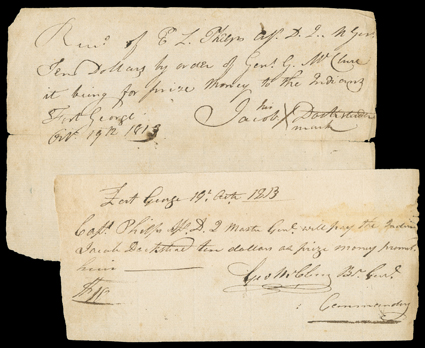 Recd of E L Phelps Asst D. Q. M Genl
Ten Dollars by order of Genl G. McClure
it being for prize money to the Indians
Fort George his
Oct. 19th 1813 Jacob X
mark
Fort George 19th Octr 1813
Capt Phelps D. Q Master Genl will pay the Indian
Jacob ten dollars as prize money promised
him
Geo McClure Br. Genl
Commanding